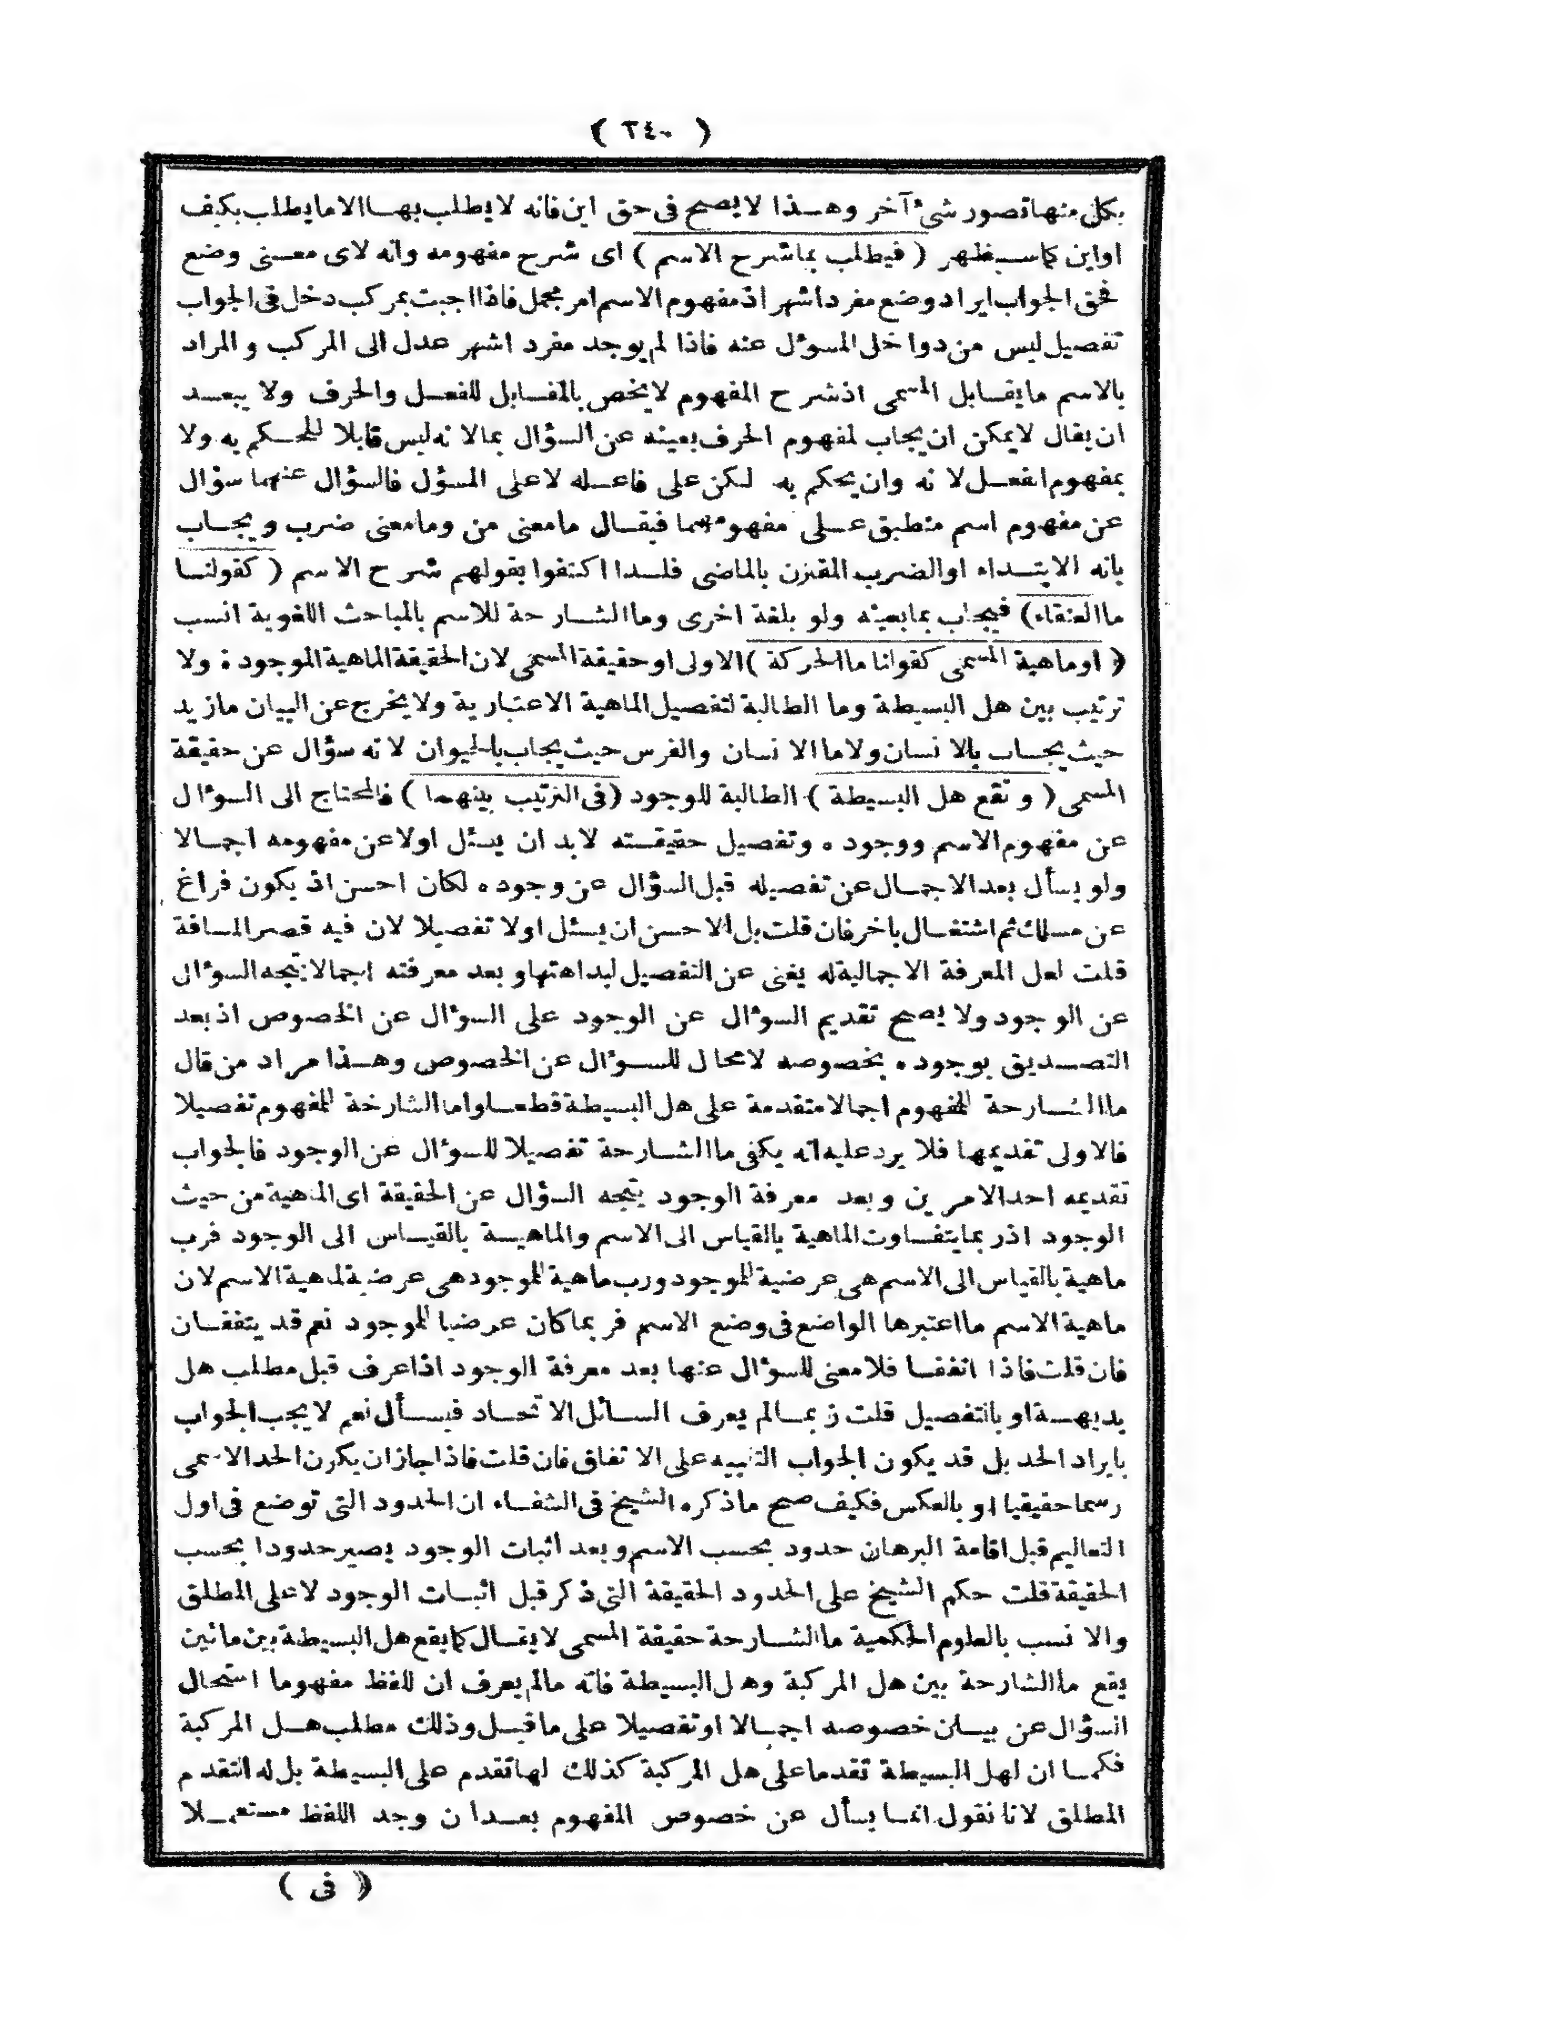 ( ٢٤٠ )
بكل منها تصور شئ آخر وهذا لا يصح فى حق اين فانه لا يطلب بها الا ما يطلب بكيف
او اين كما سيظهر ( فيطلب بما شرح الاسم ) اى شرح مفهومه وانه لاى معنى وضع
فحق الجواب ايراد وضع مفرد اشهر اذ مفهوم الاسم امر مجمل فاذا اجبت بمركب دخل فى الجواب
تفصيل ليس من دواخل المسؤل عنه فاذا لم يوجد مفرد اشهر عدل الى المركب والمراد
بالاسم ما يقابل المسمى اذ شرح المفهوم لا يخص بالمقابل للفعل والحرف ولا يبعد
ان يقال لا يمكن ان يجاب لمفهوم الحرف بعينه عن السؤال بما لانه ليس قابلا للحكم به ولا
بمفهوم الفعل لانه وان يحكم به لكن على فاعله لا على المسؤل فالسؤال عنهما سؤال
عن مفهوم اسم منطبق على مفهومهما فيقال ما معنى من وما معنى ضرب ويجاب
بانه الابتداء او الضرب المقترن بالماضى فلذا اكتفوا بقولهم شرح الاسم ( كقولنا
ما العنقاء) فيجاب بما بعينه ولو بلغة اخرى وما الشارحة للاسم بالمباحث اللغوية انسب
( او ماهية المسمى كقولنا ما الحركة ) الاولى او حقيقة المسمى لان الحقيقة الماهية الموجودة ولا
ترتيب بين هل البسيطة وما الطالبة لتفصيل الماهية الاعتبارية ولا يخرج عن البيان ما زيد
حيث يجاب بالانسان ولا ما الانسان والفرس حيث يجاب بالحيوان لانه سؤال عن حقيقة
المسمى ( وتقع هل البسيطة ) الطالبة للوجود (فى الترتيب بينهما ) فالمحتاج الى السوءال
عن مفهوم الاسم ووجوده وتفصيل حقيقته لابد ان يسئل اولا عن مفهومه اجمالا
ولو يسأل بعد الاجمال عن تفصيله قبل السؤال عن وجوده لكان احسن اذ يكون فراغ
عن مسلك ثم اشتغال باخر فان قلت بل الاحسن ان يسئل اولا تفصيلا لان فيه قصر المسافة
قلت لعل المعرفة الاجمالية له يغنى عن التفصيل لبداهتها وبعد معرفته اجمالا يتجه السوءال
عن الوجود ولا يصح تقديم السوءال عن الوجود على السوءال عن الخصوص اذ بعد
التصديق بوجوده بخصوصه لا مجال للسوءال عن الخصوص وهذا مراد من قال
ما الشارحة للمفهوم اجمالا متقدمة على هل البسيطة قطعا واما الشارخة للمفهوم تفصيلا
فالاولى تقديمها فلا يرد عليه انه يكفى ما الشارحة تفصيلا للسوءال عن الوجود فالجواب
تقديمه احد الامرين وبعد معرفة الوجود يتجه السؤال عن الحقيقة اى الماهية من حيث
الوجود اذ ربما يتفاوت الماهية بالقياس الى الاسم والماهية بالقياس الى الوجود فرب
ماهية بالقياس الى الاسم هى عرضية للموجود ورب ماهية للموجود هى عرضية لماهية الاسم لان
ماهية الاسم ما اعتبرها الواضع فى وضع الاسم فربما كان عرضيا للموجود نعم قد يتفقان
فان قلت فاذا اتفقا فلا معنى للسوءال عنها بعد معرفة الوجود اذا عرف قبل مطلب هل
بديهة او بالتفصيل قلت ربما لم يعرف السائل الاتحاد فيسأل نعم لا يجب الجواب
بايراد الحد بل قد يكون الجواب التنبيه على الاتفاق فان قلت فاذا جاز ان يكون الحد الاسمى
رسما حقيقيا او بالعكس فكيف صح ما ذكره الشيخ فى الشفاء ان الحدود التى توضع فى اول
التعاليم قبل اقامة البرهان حدود بحسب الاسم وبعد اثبات الوجود يصير حدودا بحسب
الحقيقة قلت حكم الشيخ على الحدود الحقيقة التى ذكر قبل اثبات الوجود لا على المطلق
والانسب بالعلوم الحكمية ما الشارحة حقيقة المسمى لا يقال كما يقع هل البسيطة بين مائين
يقع ما الشارحة بين هل المركبة وهل البسيطة فانه ما لم يعرف ان للفظ مفهوما استحال
السؤال عن بيان خصوصه اجمالا او تفصيلا على ما قيل وذلك مطلب هل المركبة
فكما ان لهل البسيطة تقدما على هل المركبة كذلك لها تقدم على البسيطة بل له التقدم
المطلق لانا نقول انما يسأل عن خصوص المفهوم بعد ان وجد اللفظ مستعملا
( فى )